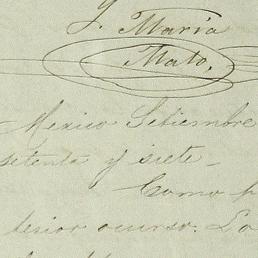 J. María
Mato.
Mexico Setiembre
setenta y siete_
Como
ocurso. Lo